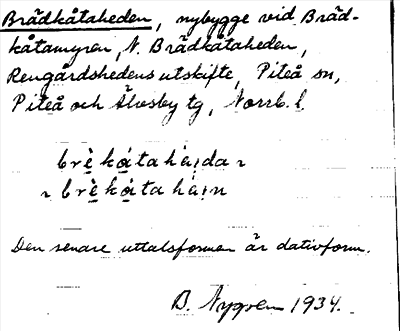 Brädkåtaheden, nybygge vid Bräd-
kåtamyren, N. Brädkåtaheden,
Rengårdshedens utskifte, Piteå sn,
Piteå och Älvsby tg, Norrb. l.
brὲkåtahàịda ɿ
ɿ brὲkåtahàịn
Den senare uttalsformen är dativform.
B. Nygren 1934.